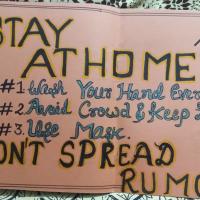 STAY
AT HOME
#1. Wash Your Hand Ever
#2. Avoid Crowd & Keep
#3. Use Mask.
ON'T SPREAD
RUMO